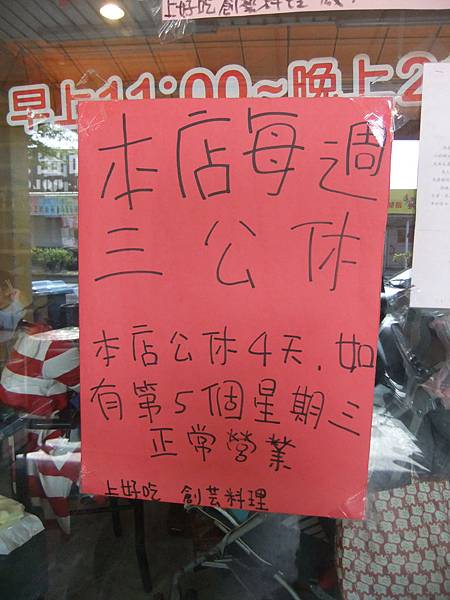 上好吃創藝料理
早上11:00~晚上2
本店每週
三公休
本店公休4天.如
有第5個星期三
正常營業
上好吃 創芸料理